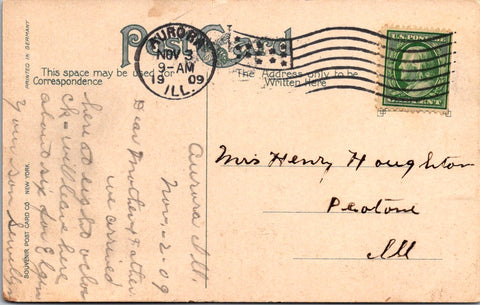 Post Card
AURORA
NOV 3
9-AM
1909
ILL.
U.S. POSTAGE
CENT
This space may be used for
Correspondence
The Address only to be
Written Here
PRINTED IN GERMANY
SOUVENIR POST CARD CO. NEW YORK.
Aurora Ill.
Nov. 2-09
Dear Mother & Father
we arrived
here at eight o'clo
ck - will leave here
about six for Elgin
Your Son
Mrs Henry Houghton
Peotone
Ill